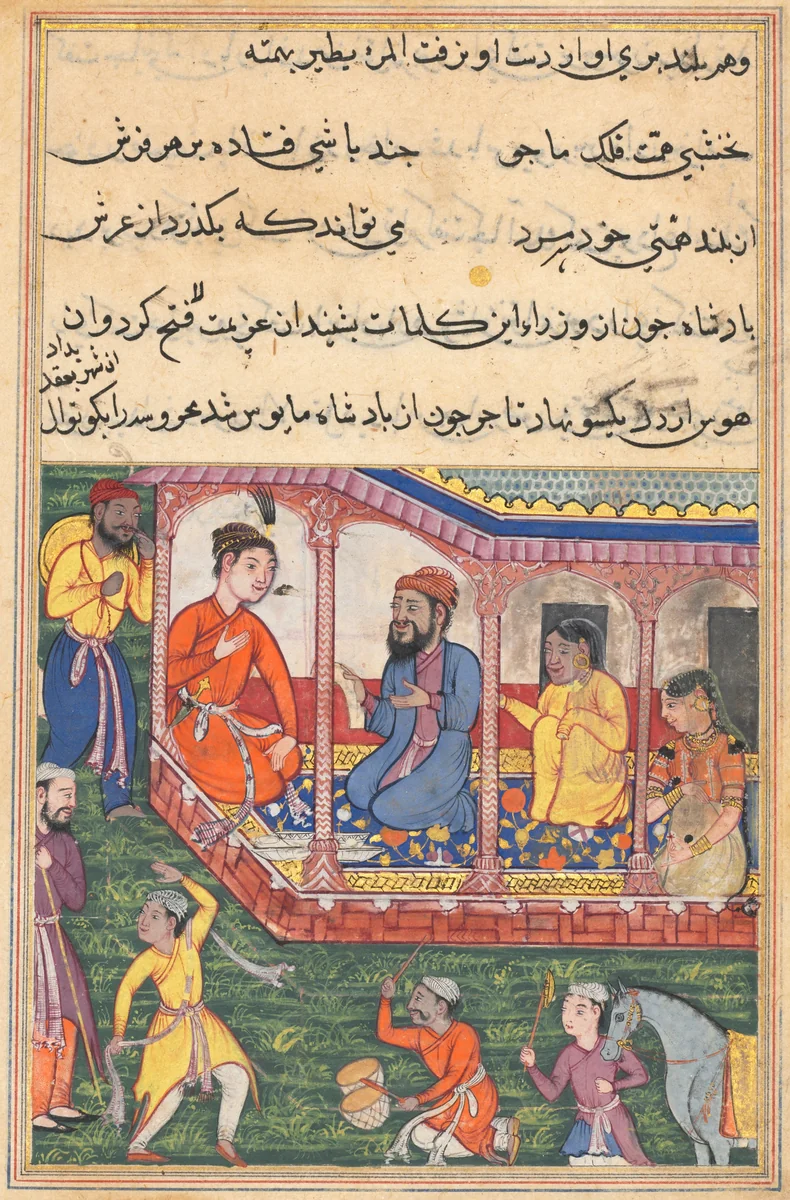 وهم بلند پري او از دست او نرفت المرء یطیر بهمته
نخشبي همّت فلک ما جو جند باشي فتاده بر هر فرش
از بلند همّتي خود مرد مي تواند که بکذرد از عرش
بادشاه جون از وزراء این کلمات بشنید ان عزیمت فتح کرد وان
هوس از دل یکسو نهاد تاجر جون از بادشاه مایوس شد محروسه را بکوتوال
ان شهر بعقد
بداد